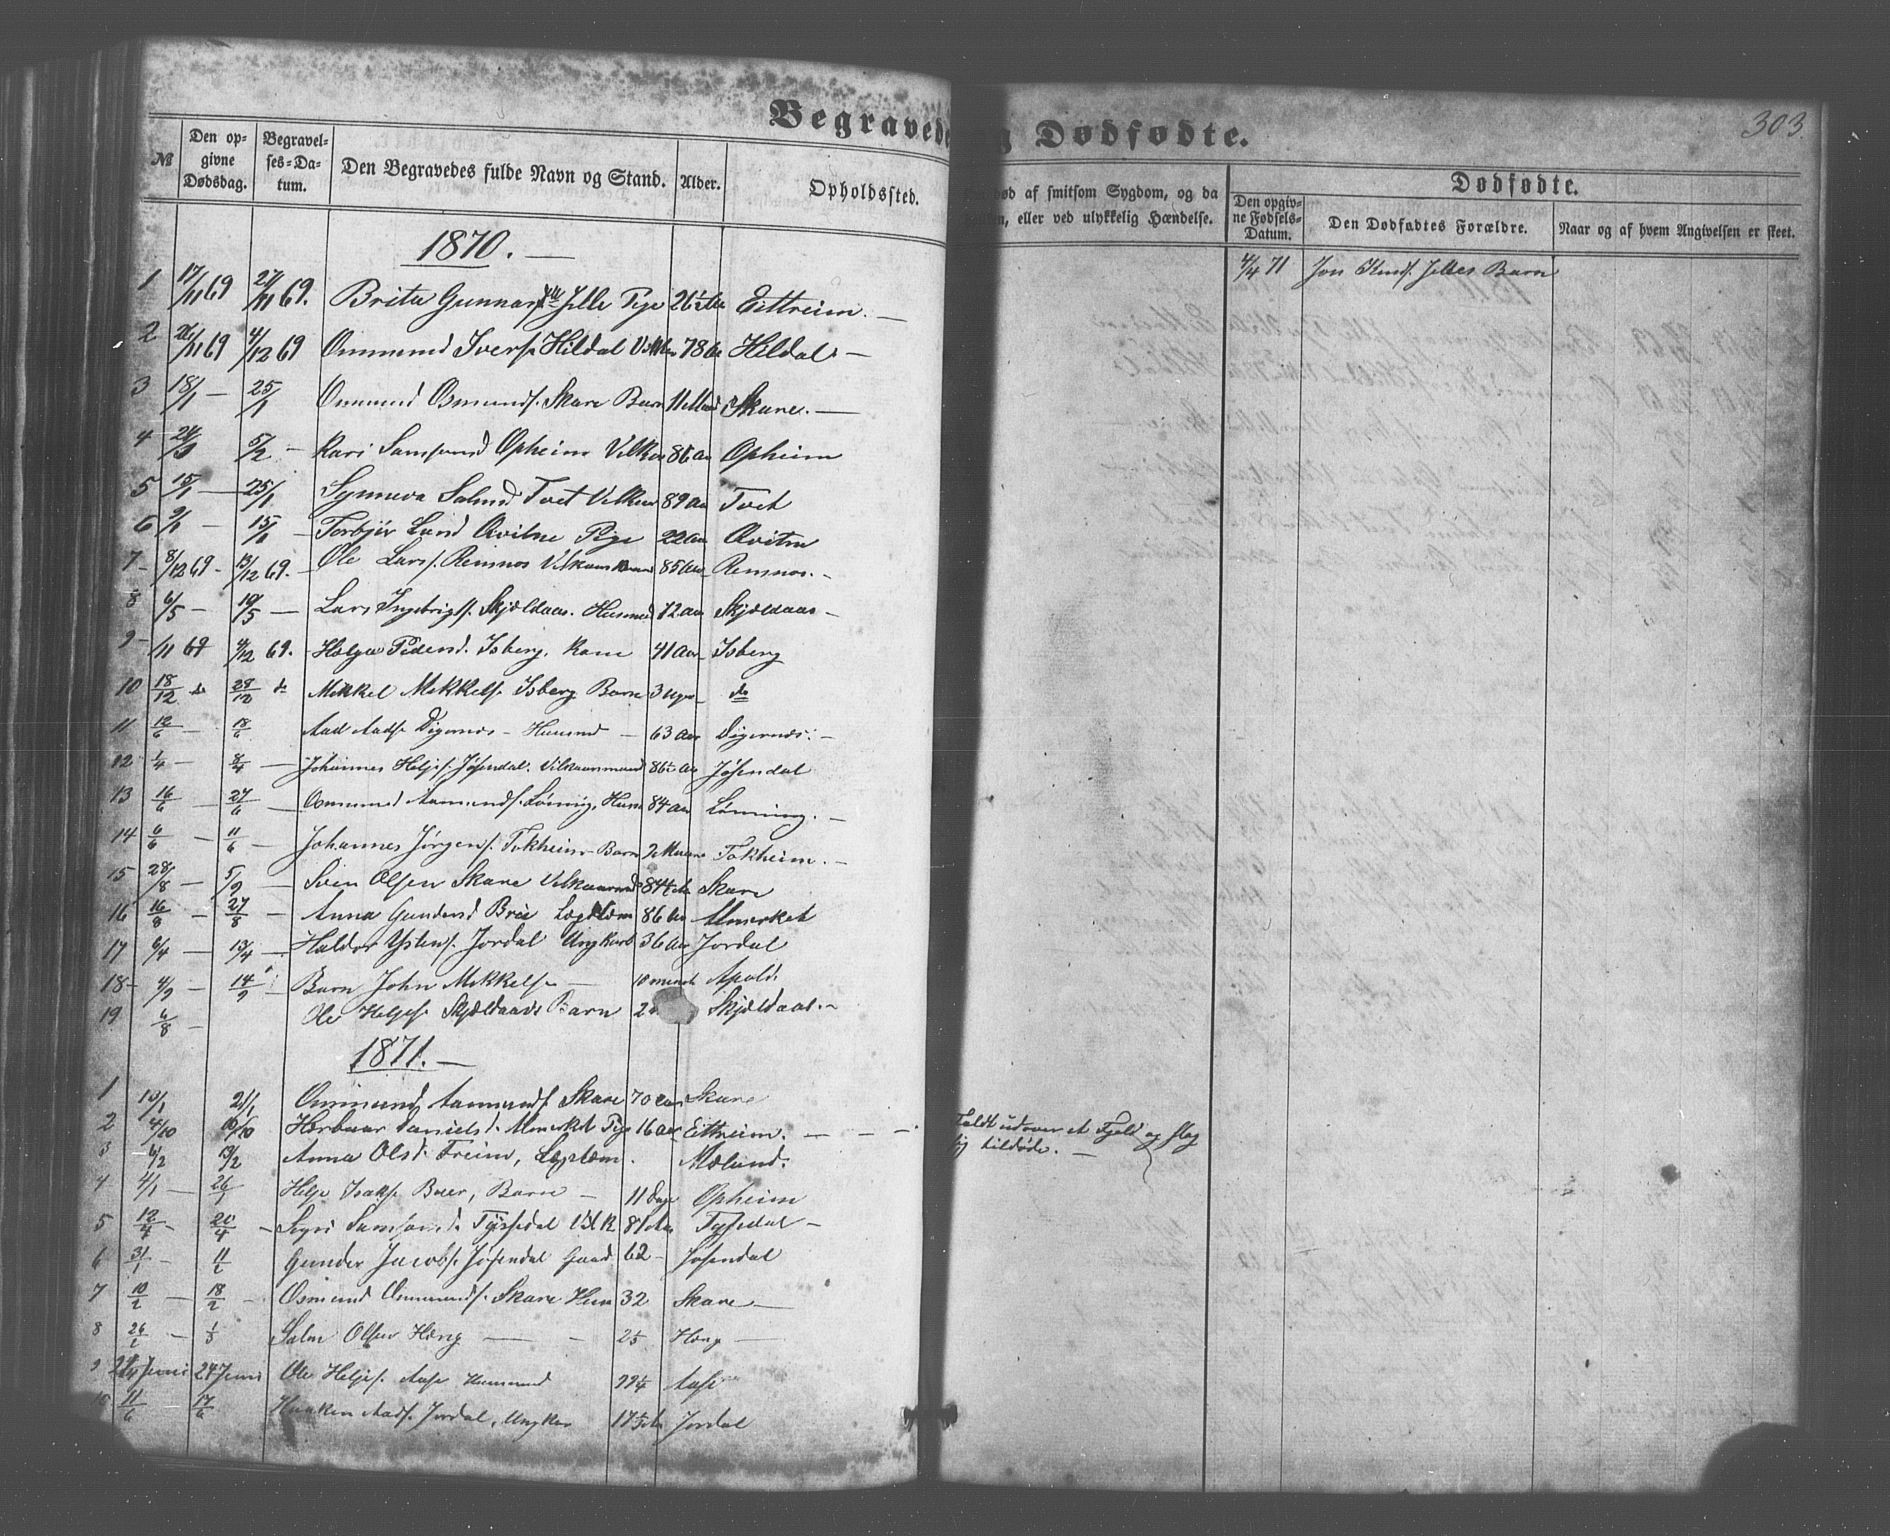 Begravede
og Dødfødte.
303.
№ Den opgivne Dødsdag. Begravelses-Datum. Den Begravedes fulde Navn og Stand. Alder. Opholdssted.
død af smitsom Sygdom, og da
eller ved ulykkelig Hændelse.
Dødfødte.
Den opgivne Fødsels-Datum. Den Dødfødtes Forældre. Naar og af hvem Angivelsen er skeet.
1870.
4/4 71 Jon Jilles Barn
1 17/11 69 27/11 69. Brita Jille Pige 26½ Aar Eittreim.
2 26/11 69 4/12 69 Ommund Ivers. Hildal 78 Aar Hildal
3 18/1 25/1 Ommund Osmunds. Skare Barn 11 Mnd Skare.
4 24/1 5/2 Kari Samsond Opheim Vilkaar 86 Aar Opheim
5 15/1 25/1 Synneva Tvet 89 Aar Tvet
6 9/1 15/1 Torbjør Qvitne Pige 22 Aar Qvitne
7 8/12 69 13/12 69. Ole Lars. Remnos Vilkaarsmand 85 Aar Remnos.
8 6/5 16/5 Lars Ingebrigts. Skjældaas. Husmd 72 Aar Skjældaas
9 /11 69 4/12 69. Helga Pedersd. Isberg. Kone 41 Aar Isberg
10 18/12 do 28/12 do Mikkel Mikkels. Isberg Barn 3 Uger do
11 12/6 18/6 Aad Aads. Digernes Husmd 63 Aar Digernes.
12 1/4 8/4 Johannes Heljes. Jøsendal. Vilkaarsmand 86 Aar Jøsendal
13 16/6 27/6 Osmund Aamunds. Lønning. Husm 84 Aar Lønning.
14 6/6 11/6 Johannes Jørgens. Tokheim Barn Tokheim.
15 28/8 5/9 Sven Olsen Skare Skare
16 16/8 27/8 Anna Gundersd Lægdslem 86 Aar
17 6/4 13/4 Haldor Ystens. Jordal Ungkarl 36 Aar Jordal
18 4/9 14/9 Barn John Mikkels. Apold.
19 6/8 Ole Heljes. Skjældaas Barn 2 Skjældaas.
1871.
1 13/1 21/1 Ommund Aamunds. Skare 70 Aar Skare
2 4/10 10/10 Herbaar Daniels d. Pige 16 Aar Eittreim.
Faldt udover et Fjeld og slog
sig tildøde.
3 6/2 13/2 Anna Olsd. Freim, Lægslem. Mælund.
4 4/1 26/1 Helje Isaks. Buer, Barn 11 Dage Opheim
5 12/4 20/4 Syri Samsons d. Tyssedal Vilk 81 Aar Tyssedal
6 31/1 11/2 Gunder Jacobs. Jøsendal Gaard 62 Jøsendal
7 10/2 18/2 Osmund Ommunds. Skare Hus 32 Skare
8 26/2 1/3 Salm Olsen Høng 25 Høng
9 Juni 24 Juni Ole Heljes. Aase Husmand Aase
10 11/6 17/6 Haaken Aads. Jordal, Ungkar Jordal